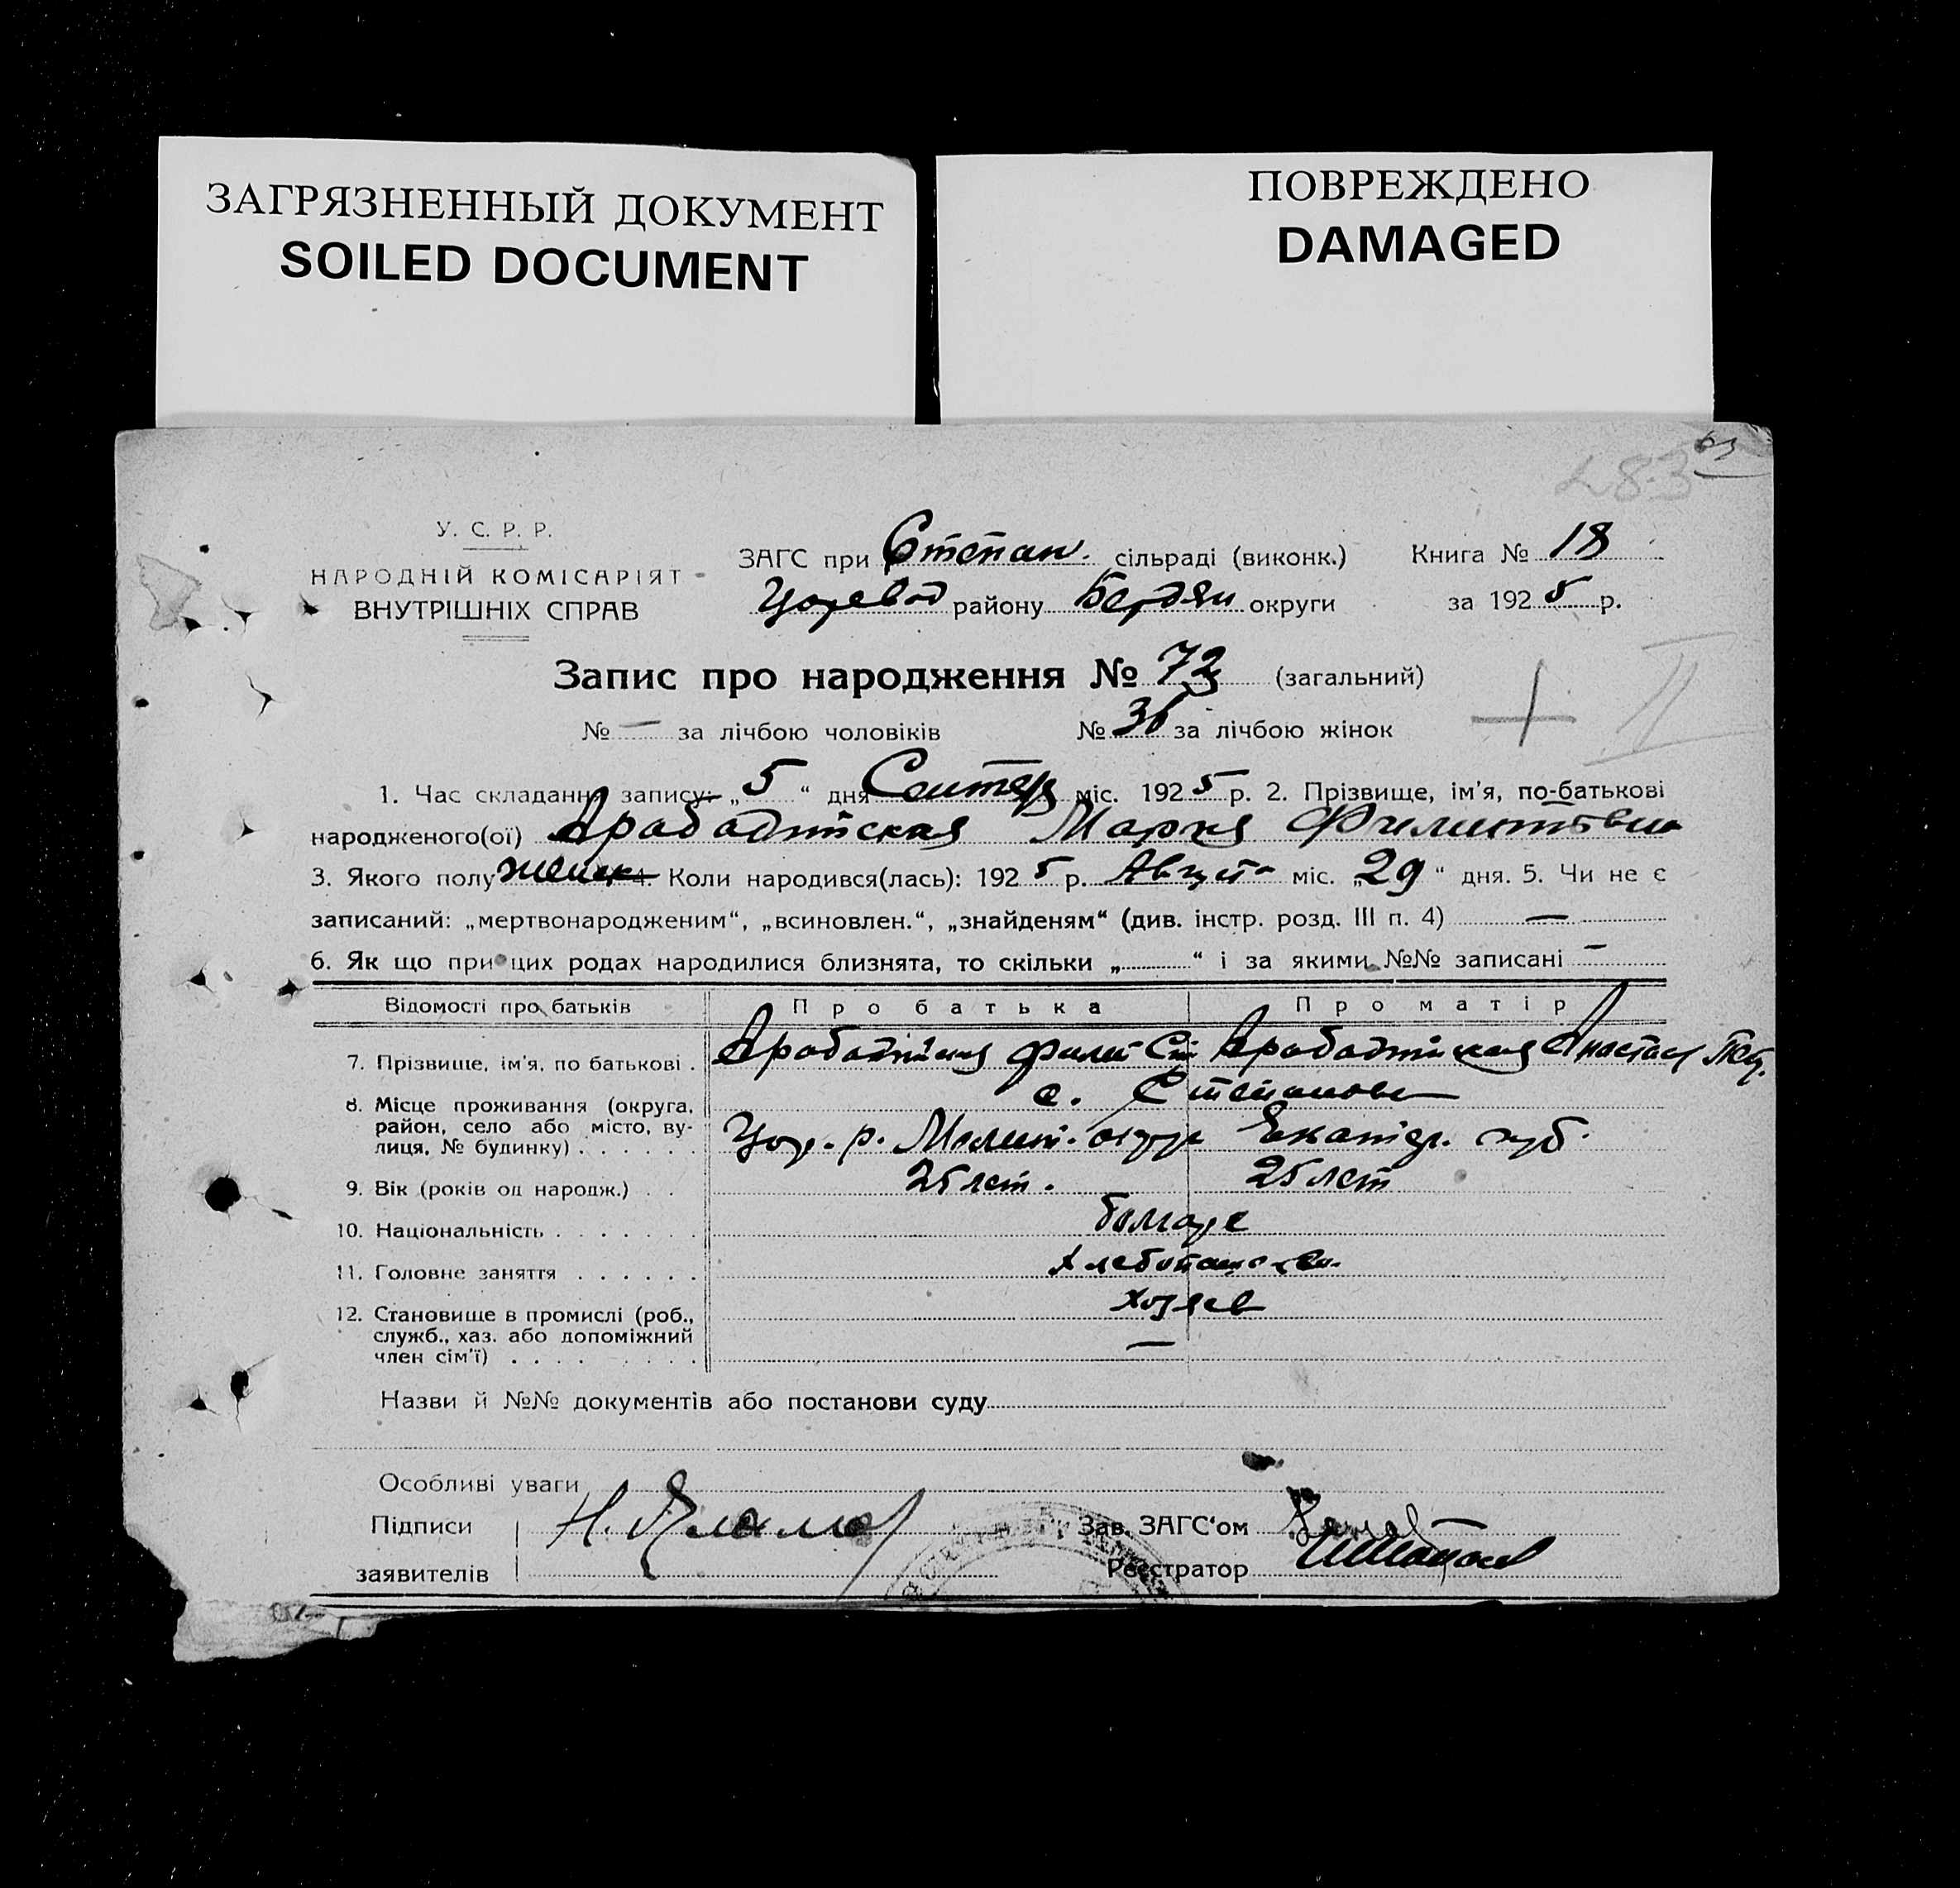 ЗАГРЯЗНЕННЫЙ ДОКУМЕНТ
SOILED DOCUMENT
ПОВРЕЖДЕНО
DAMAGED
63
283
У. С. Р. Р.
НАРОДНІЙ КОМІСАРІЯТ
ВНУТРІШНІХ СПРАВ
ЗАГС при Степан. сільраді (виконк.) Книга № 18
району Бердян округи за 1925 р.
Запис про народження № 73 (загальний)
№ — за лічбою чоловіків № 36 за лічбою жінок
II
1. Час складання запису: „5“ дня Сентяб міс. 1925 р. 2. Прізвище, ім'я, по-батькові
народженого(ої) Арабаджиская Мария Филипповна
3. Якого полу женск 4. Коли народився(лась): 1925 р. Август міс. „29“ дня. 5. Чи не є
записаний: „мертвонародженим“, „всиновлен.“, „знайденям“ (див. інстр. розд. III п. 4) —
6. Як що при цих родах народилися близнята, то скільки „ “ і за якими №№ записані —
Відомості про батьків Про батька Про матір
7. Прізвище, ім'я, по батькові . Филип Арабаджиская Анастас Пет.
8. Місце проживання (округа, район, село або місто, вулиця, № будинку) . . . . . . с. Степановка
р. Мелит. округ Екатер. губ.
9. Вік (років од народж.) . . 25 лет. 25 лет
10. Національність . . . . . . . болгаре
11. Головне заняття . . . . . .
12. Становище в промислі (роб., служб., хаз. або допоміжний член сім'ї) . . . . . . . . хозяев
—
Назви й №№ документів або постанови суду
Особливі уваги
Підписи
заявителів
Зав. ЗАГС'ом
Реєстратор